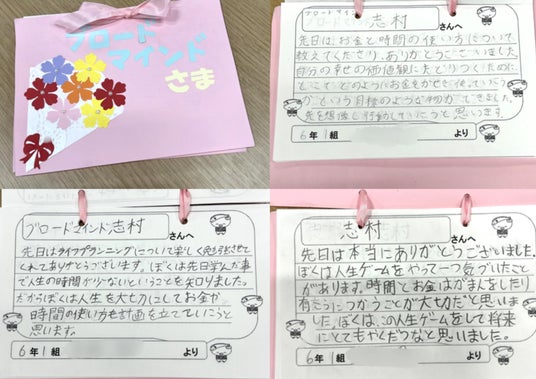 ブロード
マインド
さま
ブロードマインド 志村
さんへ
先日は、お金と時間の使い方について
教えてくださり、ありがとうございました。
自分の幸せの価値観にたどりつくために、
どこでどのようにお金をかせぎ、使っていこう
かという目標のような物ができました。
先を想像し行動していこうと思います。
6年1組
より
ブロードマインド 志村
さんへ
先日はライフプランニングについて楽しく勉強させて
くれてありがとうございます。ぼくは先日学んだ事
で人生の時間が少ないということを知りました。
だからぼくは人生を大切にしてお金や
時間の使い方も計画を立てていこうと
思います。
6年1組
より
志村
さんへ
先日は本当にありがとうございました。
ぼくは人生ゲームをやって一つ気づいたこと
があります。時間とお金はがまんをしたり
有効につかうことが大切だと思いま
した。ぼくは、この人生ゲームをして将来
にとてもやくだつなと思いました。
6年1組
より